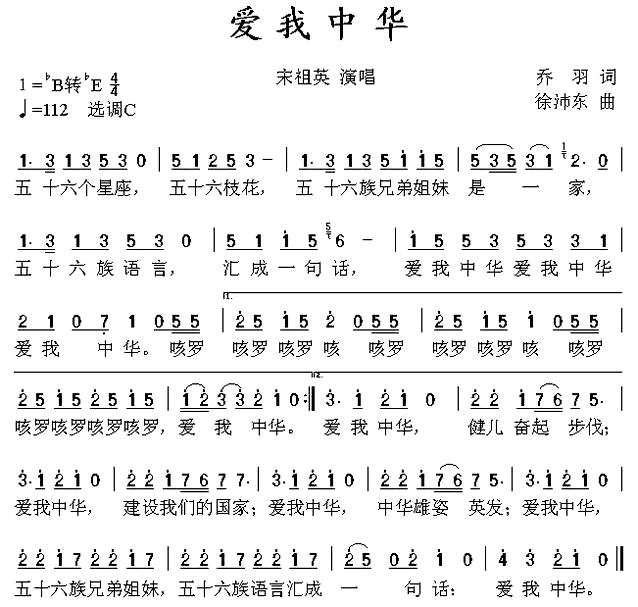 爱我中华
1=♭B转♭E 4/4 宋祖英 演唱 乔 羽 词
♩=112 选调C 徐沛东 曲
1· 3 1 3 5 3 0 | 5 1 2 5 3 – | 1· 3 1 3 5 i i 5 | 5 3 5 3 1 2· 0 |
五 十六个星座， 五十六枝花， 五 十六族兄弟姐妹 是 一 家，
1· 3 1 3 5 3 0 | 5 1 i 5 6 – | i 5 5 3 5 3 3 1 |
五 十 六 族 语 言， 汇 成 一 句 话， 爱 我 中 华 爱 我 中 华
1.
2 1 0 7 1 0 5 5 | 2 5 i 5 2 5 5 5 | 2 5 i 5 2 5 5 |
爱 我 中 华。 咳罗 咳罗 咳罗 咳 咳罗 咳罗 咳罗 咳 咳罗
2.
2 5 i 5 2 5 i 5 | i 2 3 3 2 i 0 :| 3· i 2 i 0 | 2 2 i 7 6 7 5· |
咳罗咳罗咳罗咳罗， 爱 我 中华。 爱 我 中华， 健儿 奋起 步伐；
3· i 2 i 0 | 2 2 i 7 6 7 7· | 3· i 2 i 0 | 2 2 i 7 6 7 5· | 3· i 2 i 0 |
爱我中华， 建设我们的国家；爱我中华， 中华雄姿 英发；爱我中华，
2 2 i 7 2 2 i 7 | 2 2 i 7 2 2 i 7 | 2 5 0 2 i 0 | 4 3 2 i 0 |
五十六族兄弟姐妹，五十六族语言汇成 一 句话； 爱 我 中华。